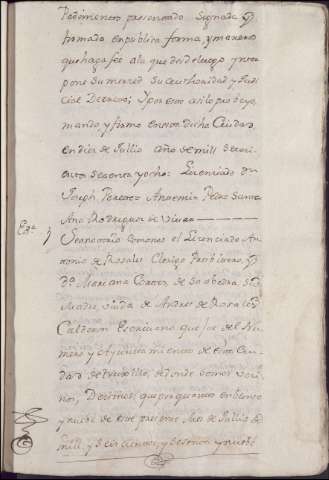 Pedimento, presentado signada y
firmada en publica forma, y manera
que haga fee a la que desde luego ynter
pone su merced su authoridad y Judi
cial Decreto; Y por este asi lo proveyo,
mando, y firmo en esta dicha Ciudad
en dies de Jullio año de mill seteci
sesenta y ocho: Licenciado Dn
Joseph Ante mi Pedro
Rodriguez de
Sea notorio como nos el Licenciado An
tonio de Rosales Clerigo Presbitero, y
Da. Mariana Cortes de Saabedra, su
Madre, viuda de Andres de Rosales
Calderon Escrivano que fue del Nu
mero y Ayuntamiento de esta Ciu
dad de Truxillo, de donde somos vezi
nos, Decimos que por quanto en
y nuebe de este presente mes de Jullio de
mill, y seiscientos, y sesenta y nuebe